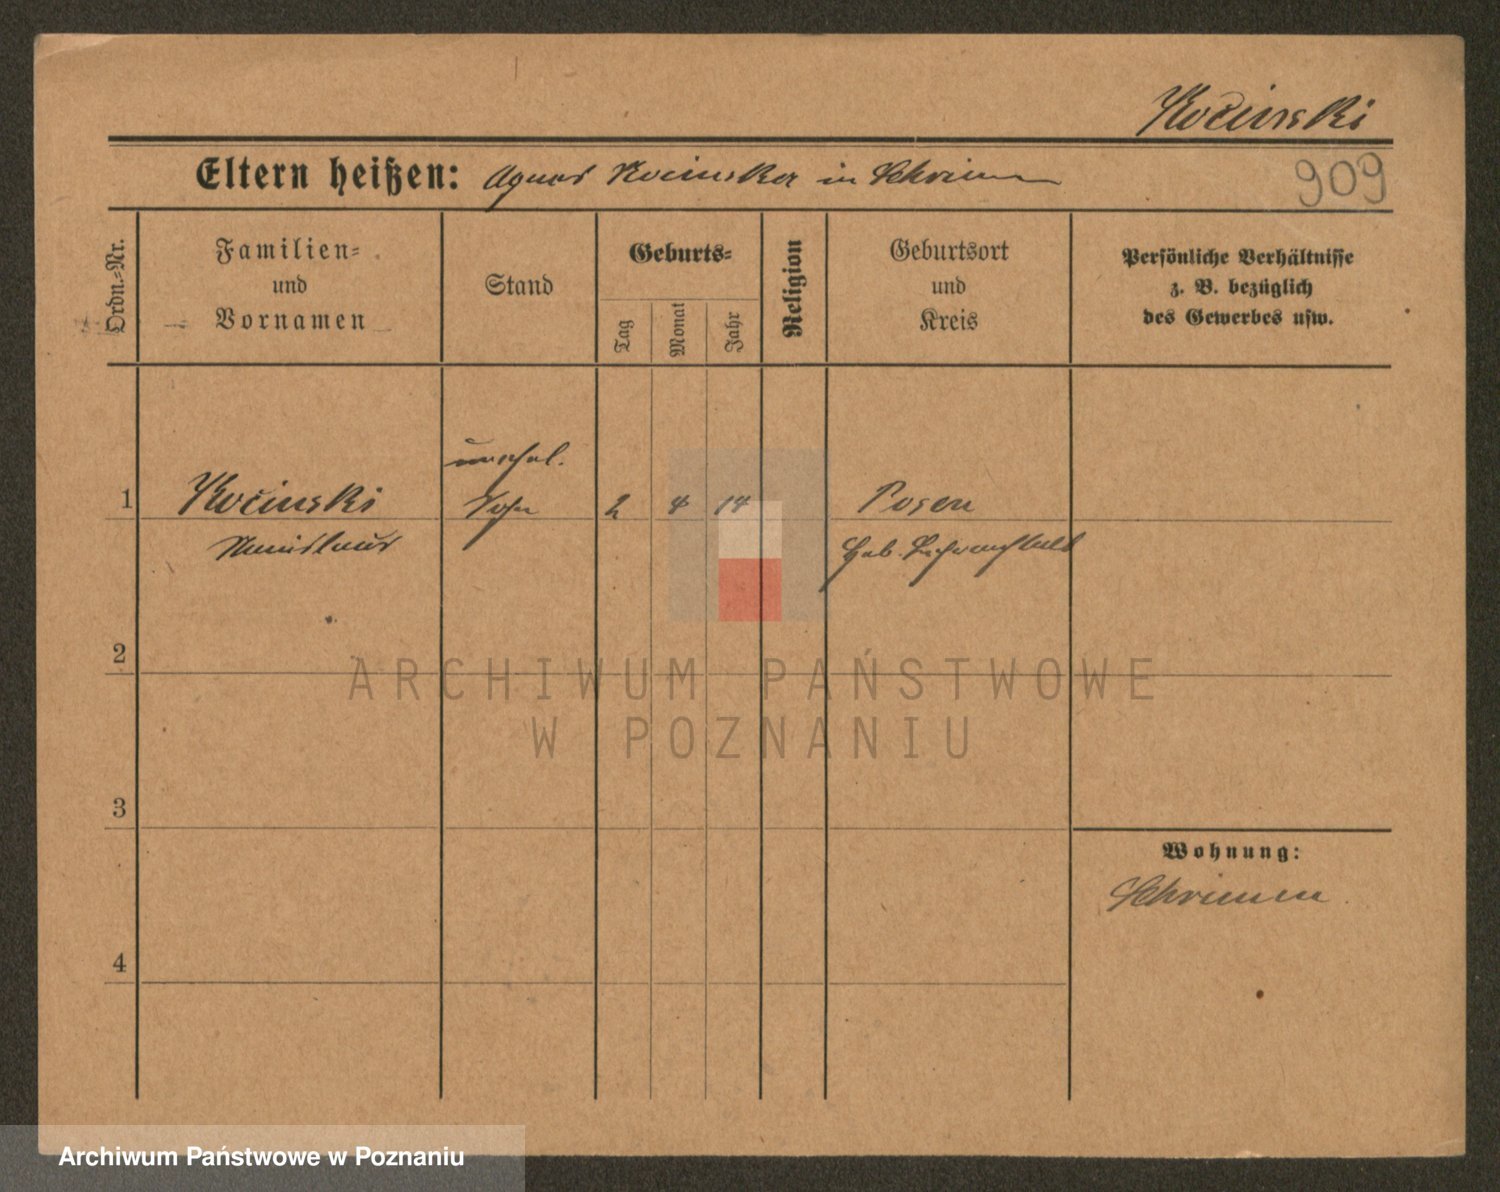 Kočinski
Eltern heißen: Agnes Kocinska in Schrimm
909
Ordn.=Nr.
Familien=
und
Vornamen
Stand
Geburts=
Tag
Monat
Jahr
Religion
Geburtsort
und
Kreis
Persönliche Verhältnisse
z. B. bezüglich
des Gewerbes usw.
unehel.
1 Kočinski Sohn 2 4 14 Posen
Stanislaus Heb. Lehranstalt
2
ARCHIWUM PAŃSTWOWE
W POZNANIU
3
Wohnung:
Schrimm
4
Archiwum Państwowe w Poznaniu